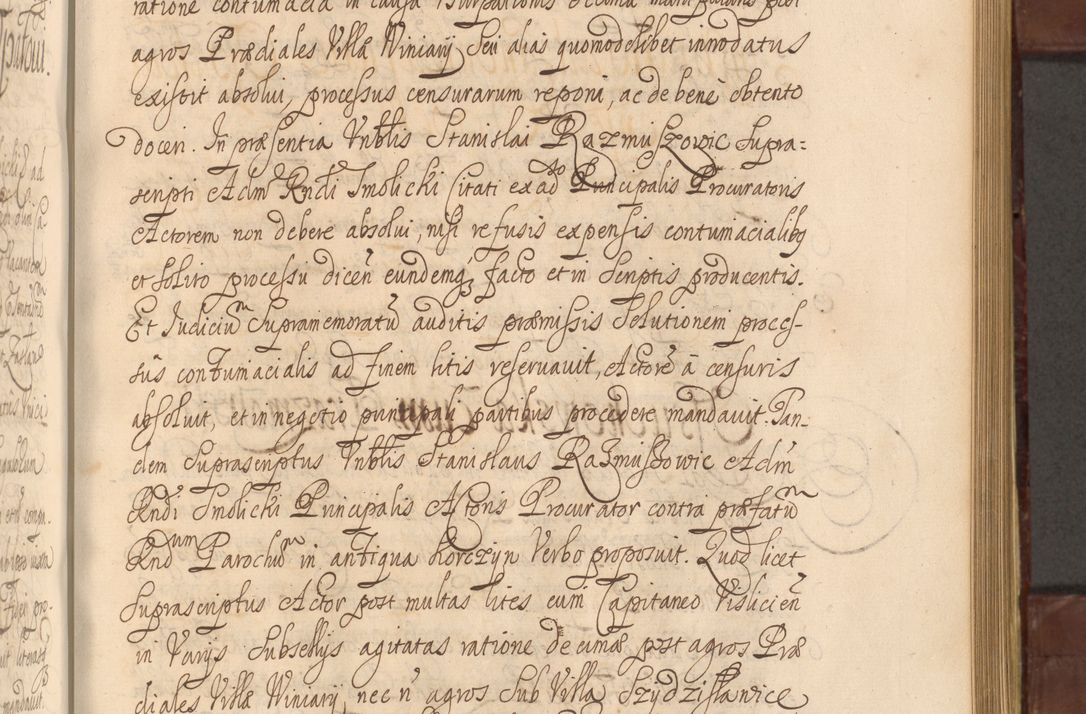 ratione contumacia in causa usurpationis decimæ manipularis post
agros Prædiales Villæ Winiary Seu alias quomodolibet innodatus
existit absolui, processus censurarum reponi, ac de bene obtento
doceri. In præsentia Vnbtlis Stanislai Razmuszowic Supra=
scripti Adm Rndi Smolicki Citati ex ad.so Principalis Procuratoris
Actorem non debere absolui, nisi refusis expensis contumacialibq
et Solito processu dicen̄ eundemq; facto et in Scriptis producentis.
Et Judiciūm Supramemoratū auditis præmissis Solutionem proces-
sûs contumacialis ad finem litis reseruauit, Actorē ā censuris
absoluit, et in negotio principali partibus procedere mandauit. Tan-
dem Suprascriptus Vnbtlis Stanislaus Razmuszowic Adm̄
Rndi Smolicki Principalis Actoris Procurator contra præfatūm
Rndum Parochūm in antiqua Korczyn Verbo proposuit. Quod licet
Suprascriptus Actor post multas lites cum Capitaneo Vislicien̄
in Varijs Subsellijs agitatas ratione decimæ post agros Præ
diales Villæ Winiary, nec n̄ agros Sub Villa Szydzisławice